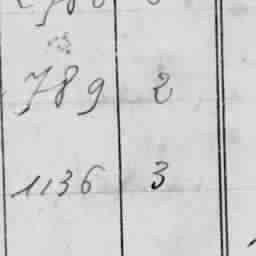 789 2
1136 3